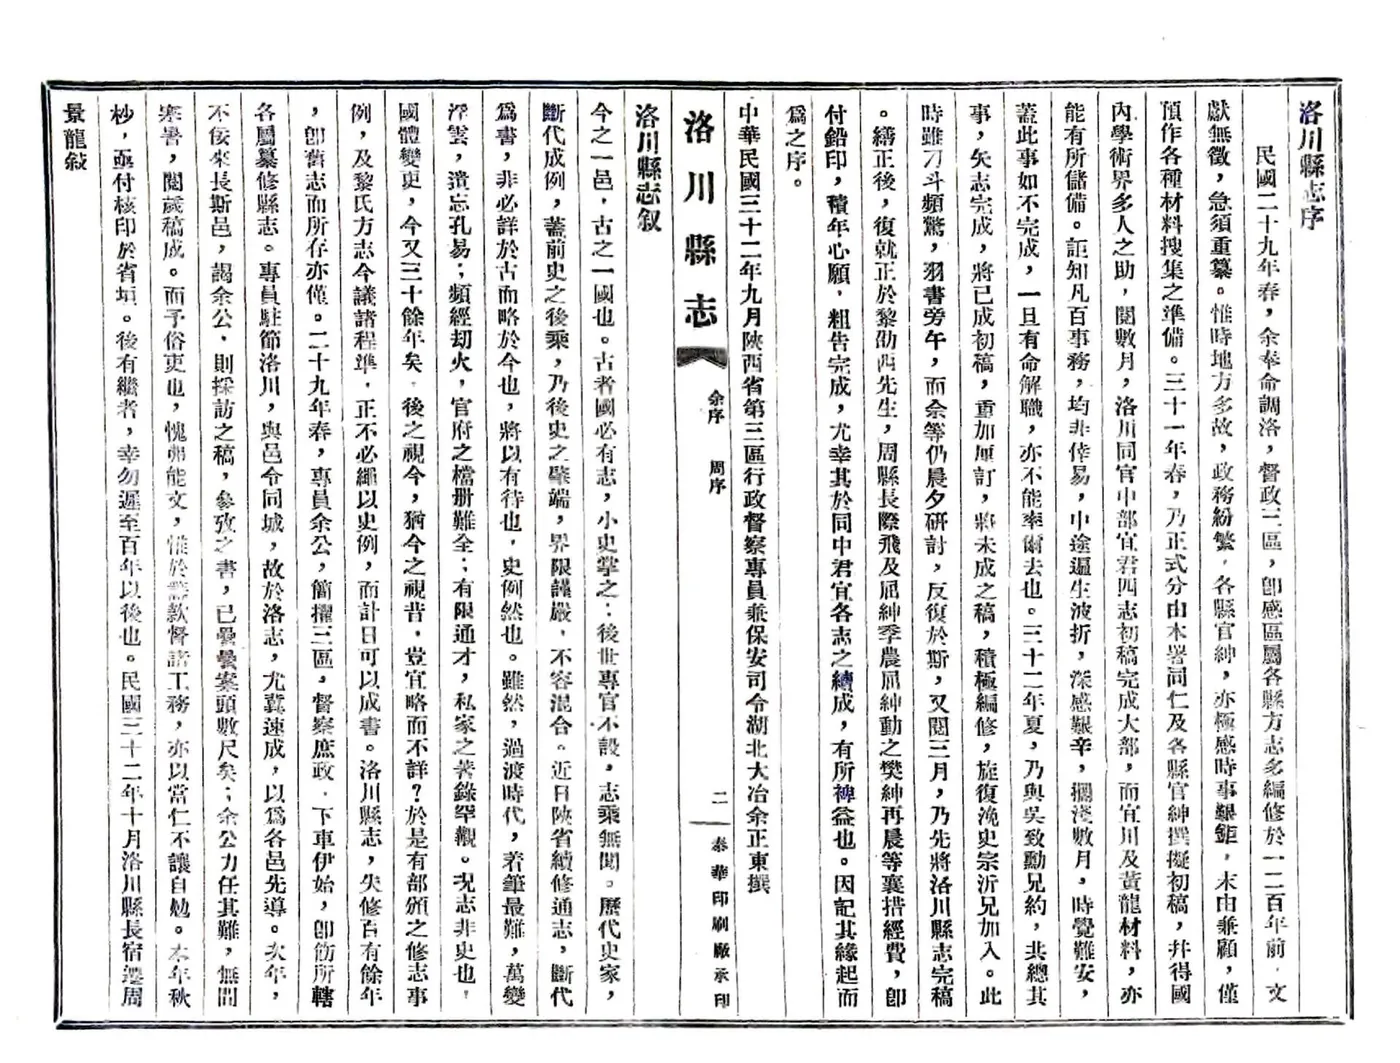 洛川縣志序
民國二十九年春，余奉命調洛，督政三區，卽感區屬各縣方志多編修於一二百年前，文
獻無徵，急須重纂。惟時地方多故，政務紛繁，各縣官紳，亦極感時事艱鉅，未由兼顧，僅
預作各種材料搜集之準備。三十一年春，乃正式分由本署同仁及各縣官紳撰擬初稿，幷得國
內學術界多人之助，閱數月，洛川同官中部宜君四志初稿完成大部，而宜川及黃龍材料，亦
能有所儲備。詎知凡百事務，均非倖易，中途遍生波折，深感艱辛，擱淺數月，時覺難安，
蓋此事如不完成，一旦有命解職，亦不能率爾去也。三十二年夏，乃與吳致勳兄約，共總其
事，矢志完成，將已成初稿，重加厘訂，將未成之稿，積極編修，旋復浼史宗沂兄加入。此
時雖刁斗頻驚，羽書旁午，而余等仍晨夕研討，反復於斯，又閱三月，乃先將洛川縣志完稿
。繕正後，復就正於黎劭西先生，周縣長際飛及屈紳季農屈紳動之樊紳再晨等襄措經費，卽
付鉛印，積年心願，粗告完成，尤幸其於同中君宜各志之續成，有所裨益也。因記其緣起而
爲之序。
中華民國三十二年九月陝西省第三區行政督察專員兼保安司令湖北大冶余正東撰
洛川縣志 余序 周序 二 泰華印刷廠承印
洛川縣志叙
今之一邑，古之一國也。古者國必有志，小史掌之；後世專官不設，志乘無聞。歷代史家，
斷代成例，蓋前史之後乘，乃後史之肇端，界限謹嚴，不容混合。近日陝省續修通志，斷代
爲書，非必詳於古而略於今也，將以有待也，史例然也。雖然，過渡時代，着筆最難，萬變
浮雲，遺忘孔易；頻經刧火，官府之檔册難全；有限通才，私家之著錄罕觀。況志非史也，
國體變更，今又三十餘年矣，後之視今，猶今之視昔，豈宜略而不詳？於是有部頒之修志事
例，及黎氏方志今議諸程準，正不必繩以史例，而計日可以成書。洛川縣志，失修百有餘年
，卽舊志而所存亦僅。二十九年春，專員余公，簡擢三區，督察庶政，下車伊始，卽飭所轄
各屬纂修縣志。專員駐節洛川，與邑令同城，故於洛志，尤冀速成，以爲各邑先導。次年，
不佞來長斯邑，謁余公，則採訪之稿，參攷之書，已纍纍案頭數尺矣；余公力任其難，無間
寒暑，閱歲稿成。而予俗吏也，愧弗能文，惟於籌款督諸工務，亦以當仁不讓自勉。本年秋
杪，亟付核印於省垣。後有繼者，幸勿遲至百年以後也。民國三十二年十月洛川縣長宿遷周
景龍敍